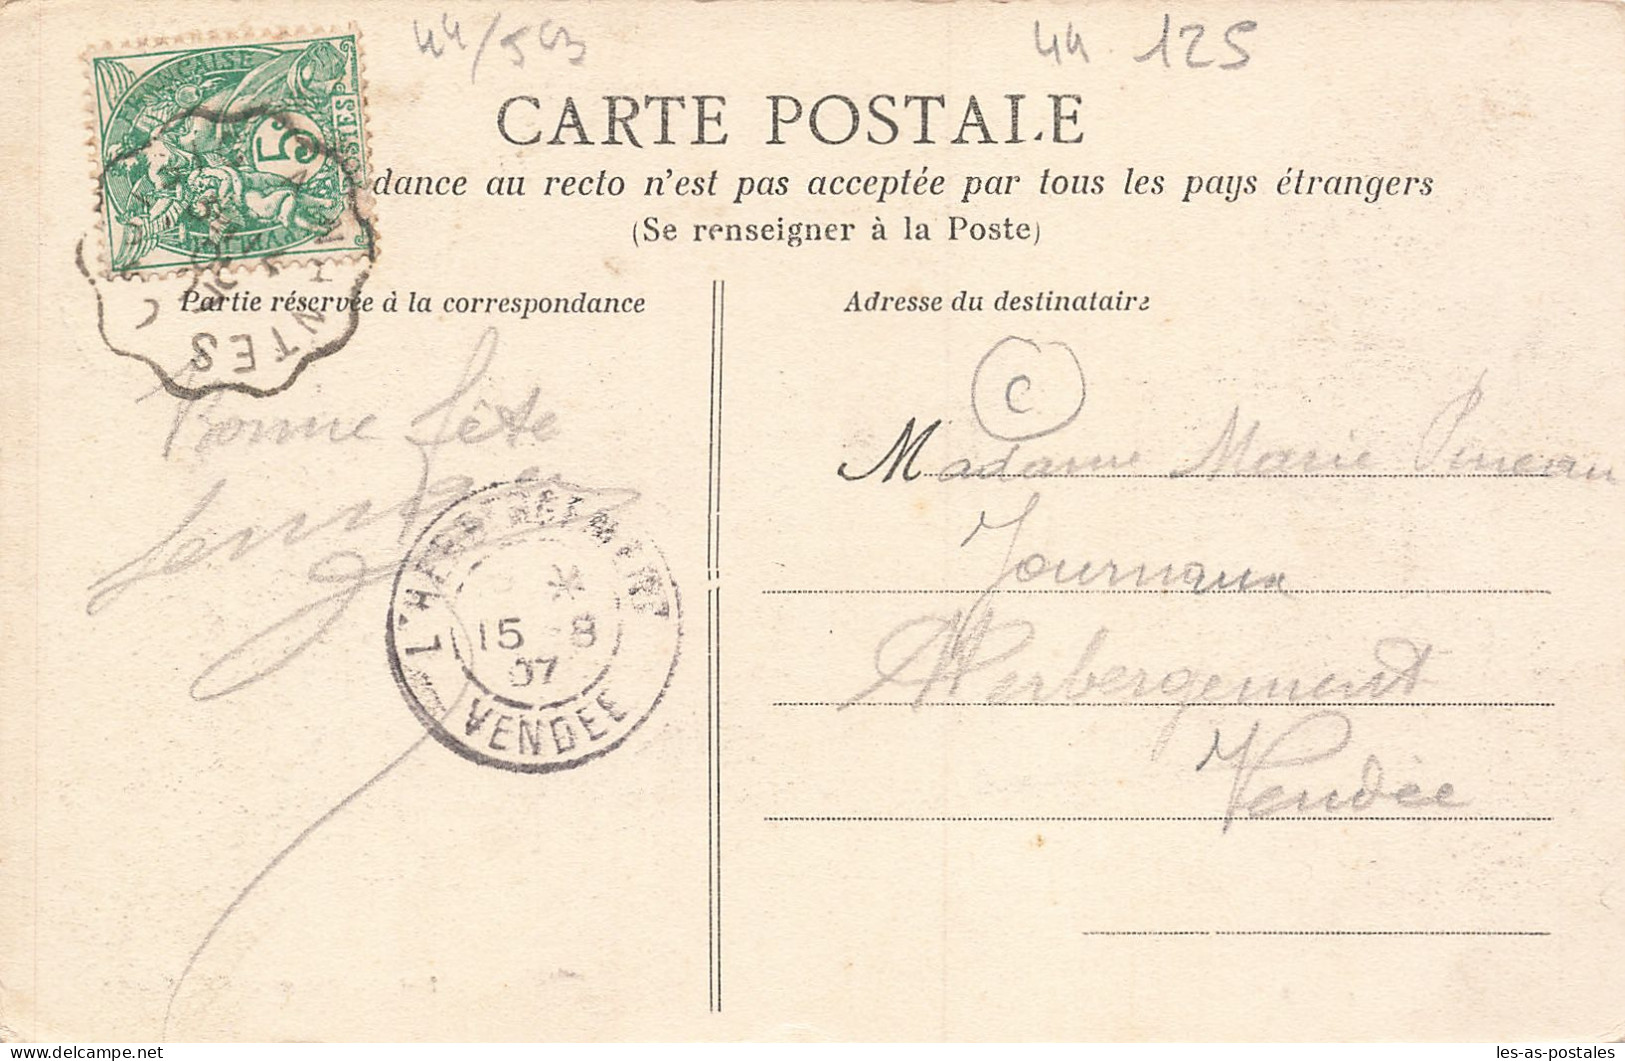 44/543
44 125
CARTE POSTALE
dance au recto n'est pas acceptée par tous les pays étrangers
(Se renseigner à la Poste)
Partie réservée à la correspondance
Adresse du destinataire
C
Bonne fête
Madame Marie Pineau
Journaux
L'Herbergement
Vendée
L'HERBERGEMENT
15 -8
07
VENDEE
FRANÇAISE
5c
POSTES
NTES
les-as-postales.com